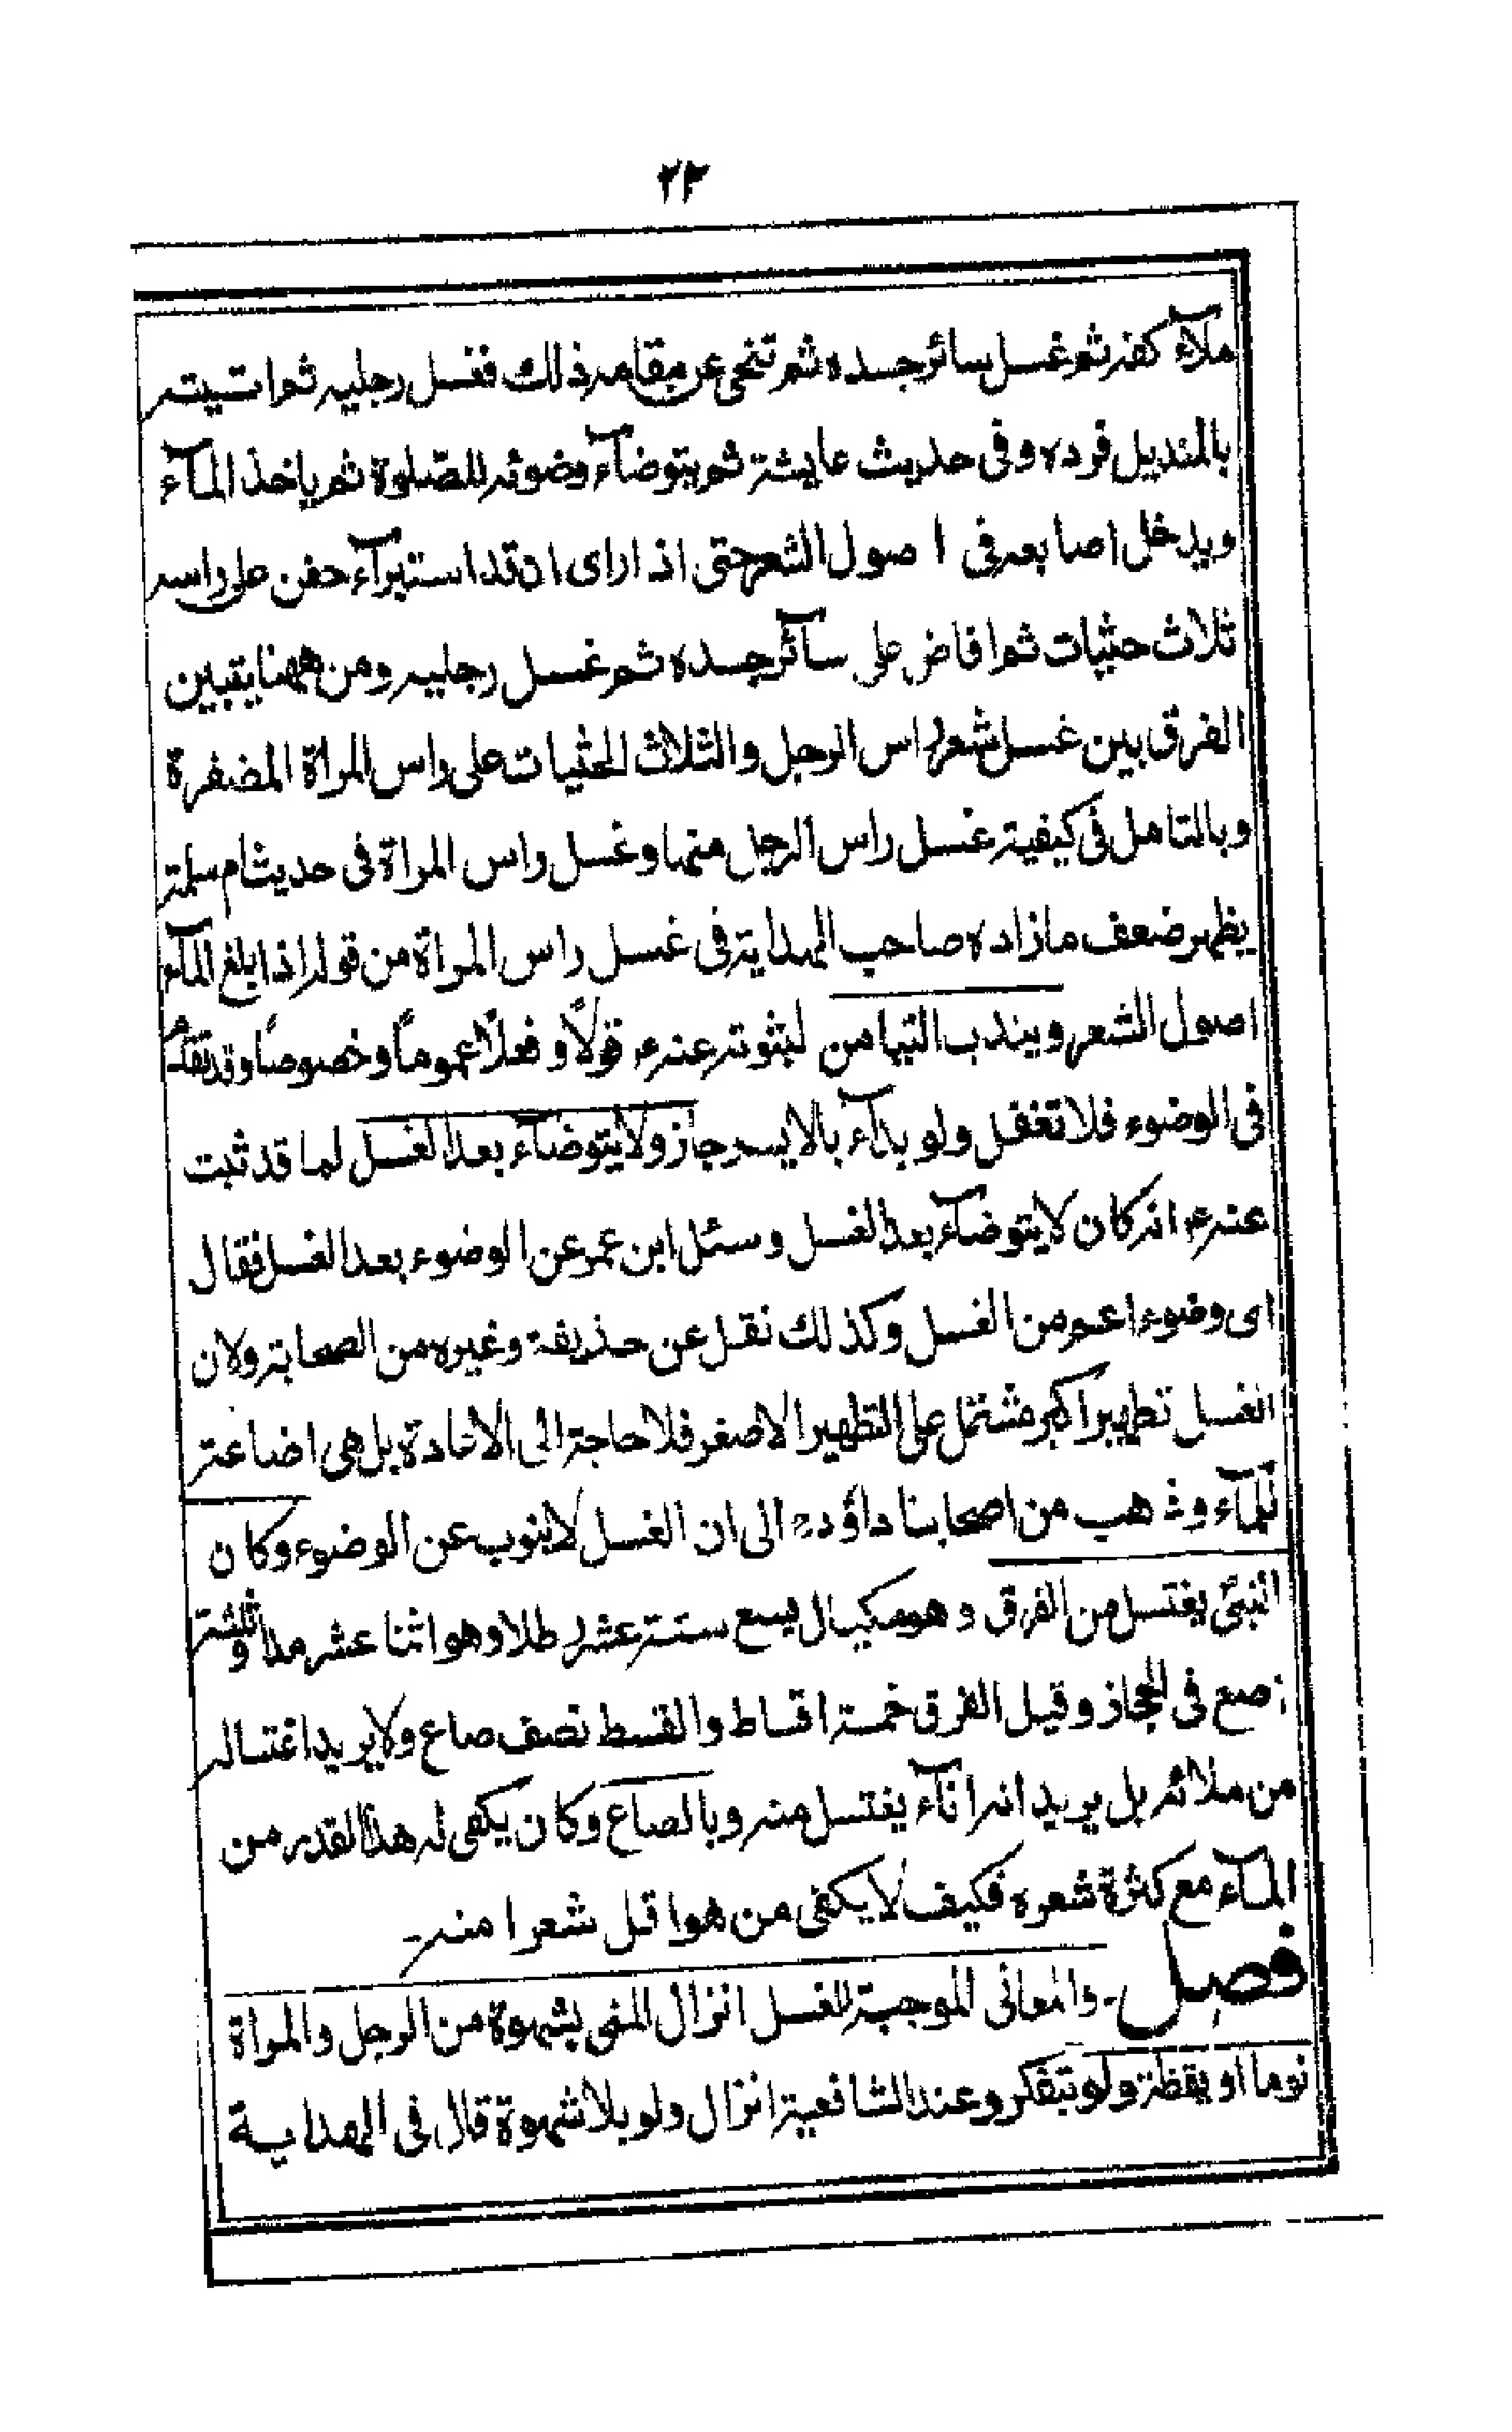 ٢٢
ملآء كفه ثم غسل سائر جسده ثم تنحى عن مقامه ذلك فغسل رجليه ثم اتيته
بالمنديل فرده وفى حديث عايشة ثم يتوضآء وضوئه للصّلوة ثم ياخذ المآء
ويدخل اصابعه فى اصول الشعر حتى اذا راى ان قد استبرآء حفن على راسه
ثلاث حثيات ثم افاض على سآئر جسده ثم غسل رجليه ومن ههنا يتبين
الفرق بين غسل شعر راس الرجل والثلاث الحثيات على راس المراة المضفرة
وبالتامل فى كيفية غسل راس الرجل منها وغسل راس المراة فى حديث ام سلمة
يظهر ضعف مازاده صاحب الهداية فى غسل راس المراة من قوله اذا بلغ المآء
اصول الشعر ويندب التيامن لثبوته عنه ع قولاً وفعلاً عموماً وخصوصاً وقد تقدم
فى الوضوء فلا تغفل ولو بدآء بالايسر جاز ولا يتوضآء بعد الغسل لما قد ثبت
عنه ع انه كان لا يتوضآء بعد الغسل وسئل ابن عمر عن الوضوء بعد الغسل فقال
اى وضوء اعم من الغسل وكذلك نقل عن حذيفة وغيره من الصحابة ولان
الغسل تطهير اكبر مشتمل على التطهير الاصغر فلا حاجة الى الاعادة بل هى اضاعة
للمآء وذهب من اصحابنا داؤد الى ان الغسل لا ينوب عن الوضوء وكان
النبى يغتسل من الفرق وهو مكيال يسع ستة عشر رطلا وهو اثنا عشر مدا وثلثة
اصع فى الحجاز وقيل الفرق خمسة اقساط والقسط نصف صاع ولا يريد اغتساله
من ملائه بل يريد انه انآء يغتسل منه وبالصاع وكان يكفى له هذا القدر من
المآء مع كثرة شعره فكيف لا يكفى من هو اقل شعرا منه -
فصل - والمعانى الموجبة للغسل انزال المنى بشهوة من الرجل والمراة
نوما او يقظة ولو بتفكر وعند الشافعية انزال ولو بلا شهوة قال فى الهداية